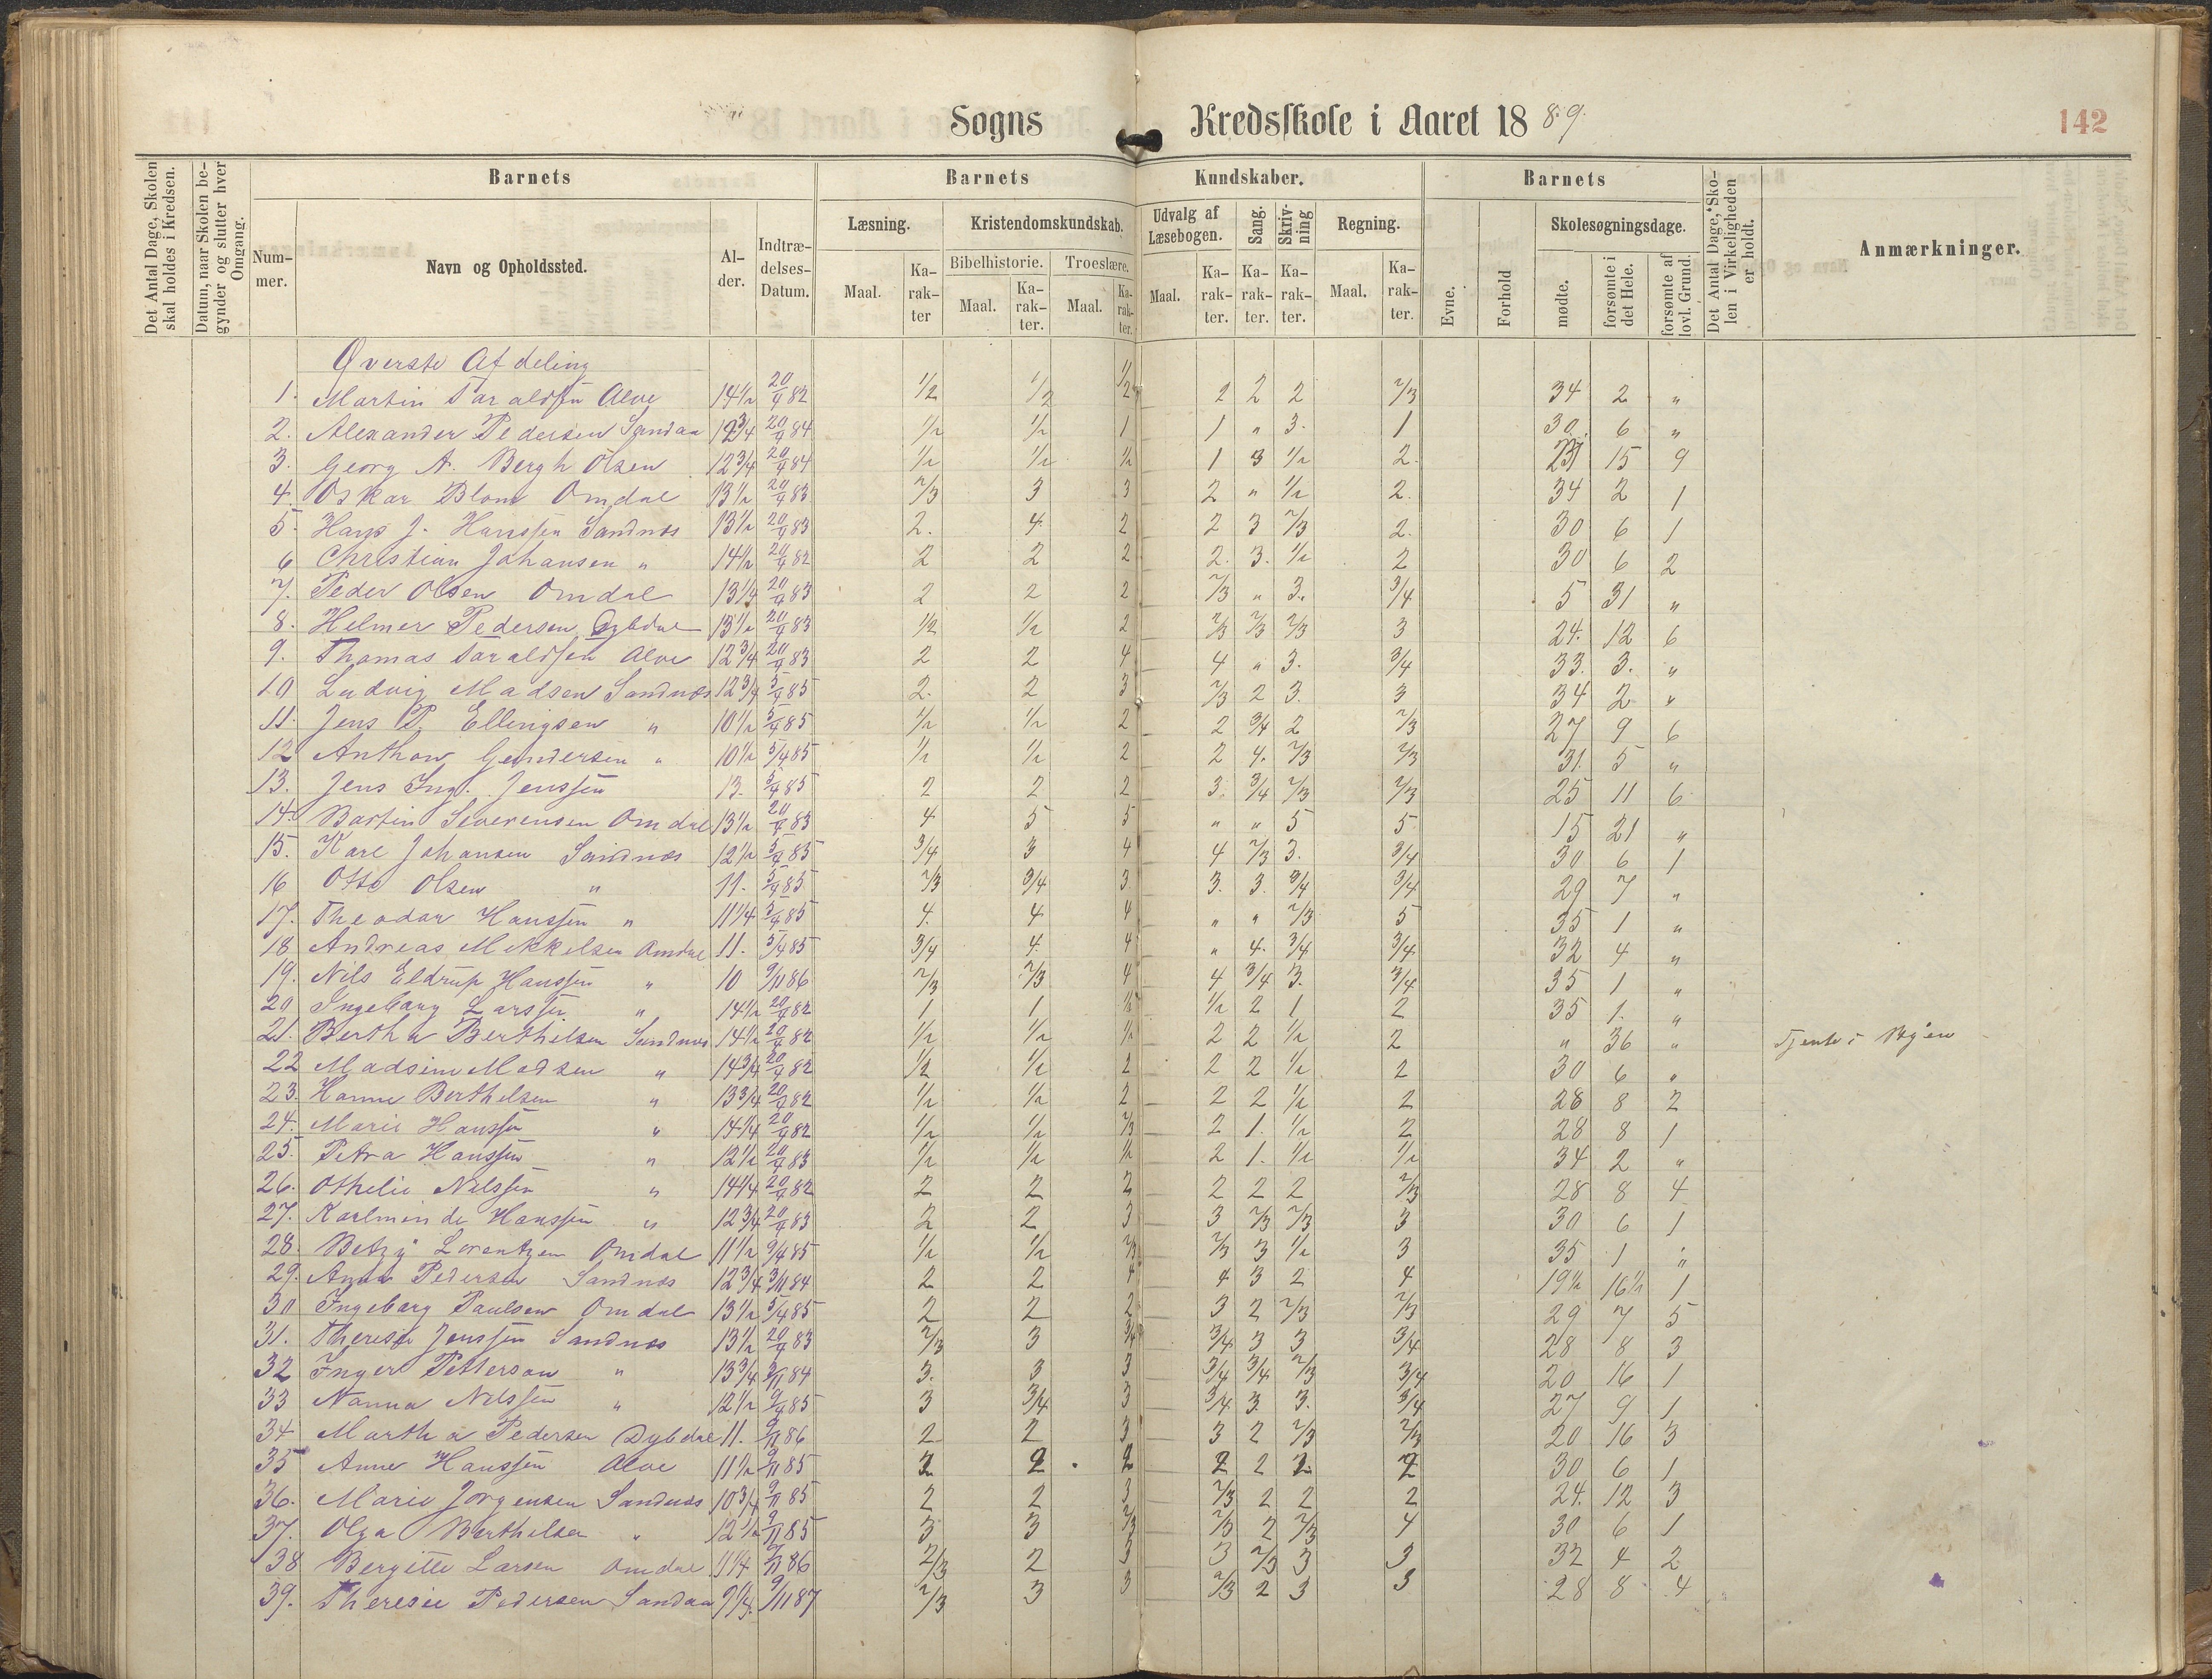 Sogns Kredsskole i Aaret 1889.
142
Det Antal Dage, Skolen skal holdes i Kredsen.
Datum, naar Skolen begynder og slutter hver Omgang.
Barnets
Nummer.
Navn og Opholdssted.
Alder.
Indtrædelses-Datum.
Barnets Kundskaber.
Læsning.
Maal.
Karakter
Kristendomskundskab.
Bibelhistorie.
Maal.
Karakter.
Troeslære.
Maal.
Karakter.
Udvalg af Læsebogen.
Maal.
Karakter.
Sang.
Karakter.
Skrivning
Karakter.
Regning.
Maal.
Karakter.
Barnets
Evne.
Forhold
Skolesøgningsdage.
mødte.
forsømte i det Hele.
forsømte af lovl. Grund.
Det Antal Dage, Skolen i Virkeligheden er holdt.
Anmærkninger.
Øverste Afdeling
1. Martin Taraldsen Alve 14½ 20/4 82 1/2 1/2 1/2 2 2 2 2/3 34 2 "
2. Alexander Pedersen Sandaa 12¾ 20/4 84 1/2 1/2 1 1 " 3. 1 30. 6 "
3. Georg A. Bergh Olsen 12¾ 20/4 84 1/2 1/2 1/2 1 3 1/2 2. 21 15 9
4. Oskar Blom Omdal 13½ 20/4 83 2/3 3 3 2 " 1/2 2. 34 2 1
5. Hans J. Hanssen Sandnæs 13½ 20/4 83 2. 4 2 2 3 2/3 2. 30 6 1
6 Christian Johansen " 14½ 20/4 82 2 2 2 2. 3. 1/2 2 30 6 2
7. Peder Olsen Omdal 13¼ 20/4 83 2 2 2 2/3 " 3. 3/4 5 31 "
8. Helmer Pedersen Dybdal 13½ 20/4 83 1/2 1/2 2 2/3 2/3 2/3 3 24. 12 6
9. Thomas Taraldsen Alve 12¾ 20/4 83 2 2 4 4 " 3. 3/4 33. 3. "
10 Ludvig Madsen Sandnæs 12¾ 5/4 85 2. 2 3 2/3 2 3. 3 34 2 "
11. Jens P. Ellingsen " 10½ 5/4 85 1/2 1/2 2 2 3/4 2 2/3 27 9 6
12 Anthon Gundersen " 10½ 5/4 85 1/2 1/2 2 2 4. 2/3 2/3 31. 5 "
13. Jens Ing. Jenssen 13. 5/4 85 2 2 2 3. 3/4 2/3 2/3 25 11 6
14. Martin Severensen Omdal 13½ 20/4 83 4 5 5 " " 5 5 15 21 "
15. Karl Johansen Sandnæs 12½ 5/4 85 3/4 3 4 4 2/3 3. 3/4 30 6 1
16 Otto Olsen " 11. 5/4 85 2/3 3/4 3 3. 3. 3/4 3/4 29 7 "
17. Theodor Hanssen " 11¼ 5/4 85 4. 4 4 " " 2/3 5 35 1 "
18 Andreas Mekkelsen Omdal 11. 5/4 85 3/4 4. 4 " 4. 3/4 3/4 32 4 "
19. Nils Eldrup Hanssen " 10 9/11 86 2/3 2/3 4 4 3/4 3. 3/4 35 1 "
20 Ingeborg Larssen " 14½ 20/4 82 1 1 1/2 1/2 2 1 2 35 1. "
21. Bertha Berthelsen Sandnæs 14½ 20/4 82 1/2 1/2 1/2 2 2 1/2 2 " 36 " Tjente i Byen
22 Madsine Madsen " 14¾ 20/4 82 1/2 1/2 2 2 2 1/2 2 30 6 "
23. Hanne Berthelsen " 13¾ 20/4 82 1/2 1/2 2 2 2 1/2 2 28 8 2
24. Marie Hanssen " 14¼ 20/4 82 1/2 1/2 2/3 2 1. 1/2 2 28 8 1
25. Petra Hanssen " 12½ 20/4 83 1/2 1/2 1/2 2 1. 1/2 1/2 34 2 "
26. Othelie Nilssen " 14¼ 20/4 82 2 2 2 2 2 2 2/3 28 8 4
27. Karlmende Hanssen " 12¾ 20/4 83 2 2 3 3 2/3 2/3 3 30 6 1
28. Betzy Lorentzen Omdal 11½ 9/4 85 1/2 1/2 2/3 2/3 3 1/2 3 35 1 "
29. Anna Pedersen Sandnæs 12¾ 3/11 84 2 2 4 4 3 2 4 19½ 16½ 1
30 Ingeborg Paulsen Omdal 13½ 5/4 85 2 2 2 3 2 2/3 2/3 29 7 5
31. Therese Jenssen Sandnæs 13½ 20/4 83 2/3 3 3/4 3/4 3 3 3/4 28 8 3
32 Inger Petterson " 13¾ 3/11 84 3. 3 3 3/4 3/4 2/3 3/4 20 16 1
33 Nanna Nilssen " 12½ 9/4 85 3 3/4 3 3/4 3. 3. 3/4 27 9 1
34 Martha Pedersen Dybdal 11. 9/11 86 2 2 3 3 2 2/3 2/3 20 16 3
35 Anne Hanssen Alve 11½ 9/11 85 2 2 2 2 2 2 2 30 6 1
36. Marie Jørgensen Sandnæs 10¾ 9/11 85 2 2 3 2/3 2 2 2 24. 12 3
37. Olga Berthelsen " 12½ 9/11 85 3 3 2/3 2/3 2 2/3 4 30 6 1
38 Bergitte Larsen Omdal 11¼ 9/11 86 2/3 2 3 3 2/3 3 3 32 4 2
39. Theresie Pedersen Sandaa 9¼. 9/11 87 2/3 3 3 2/3 2 3 3 28 8 4